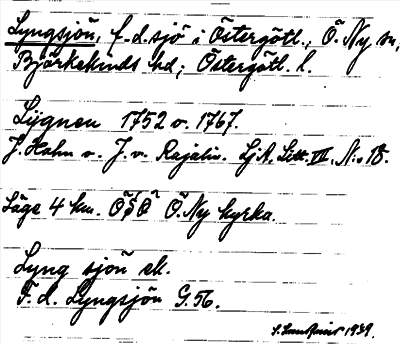 Lyngsjön, f. d. sjö i Östergötl.; Ö. Ny sn,
Björkekinds hd; Östergötl. l.
Lijgnen 1752 o. 1767.
J. Hahn o. J. v. Rajalin. SjA. Litt. VII, N:o 18.
Läge 4 km. ÖSÖ Ö. Ny kyrka.
Lyng sjön ek.
F. d. Lyngsjön G. 56.
1939.